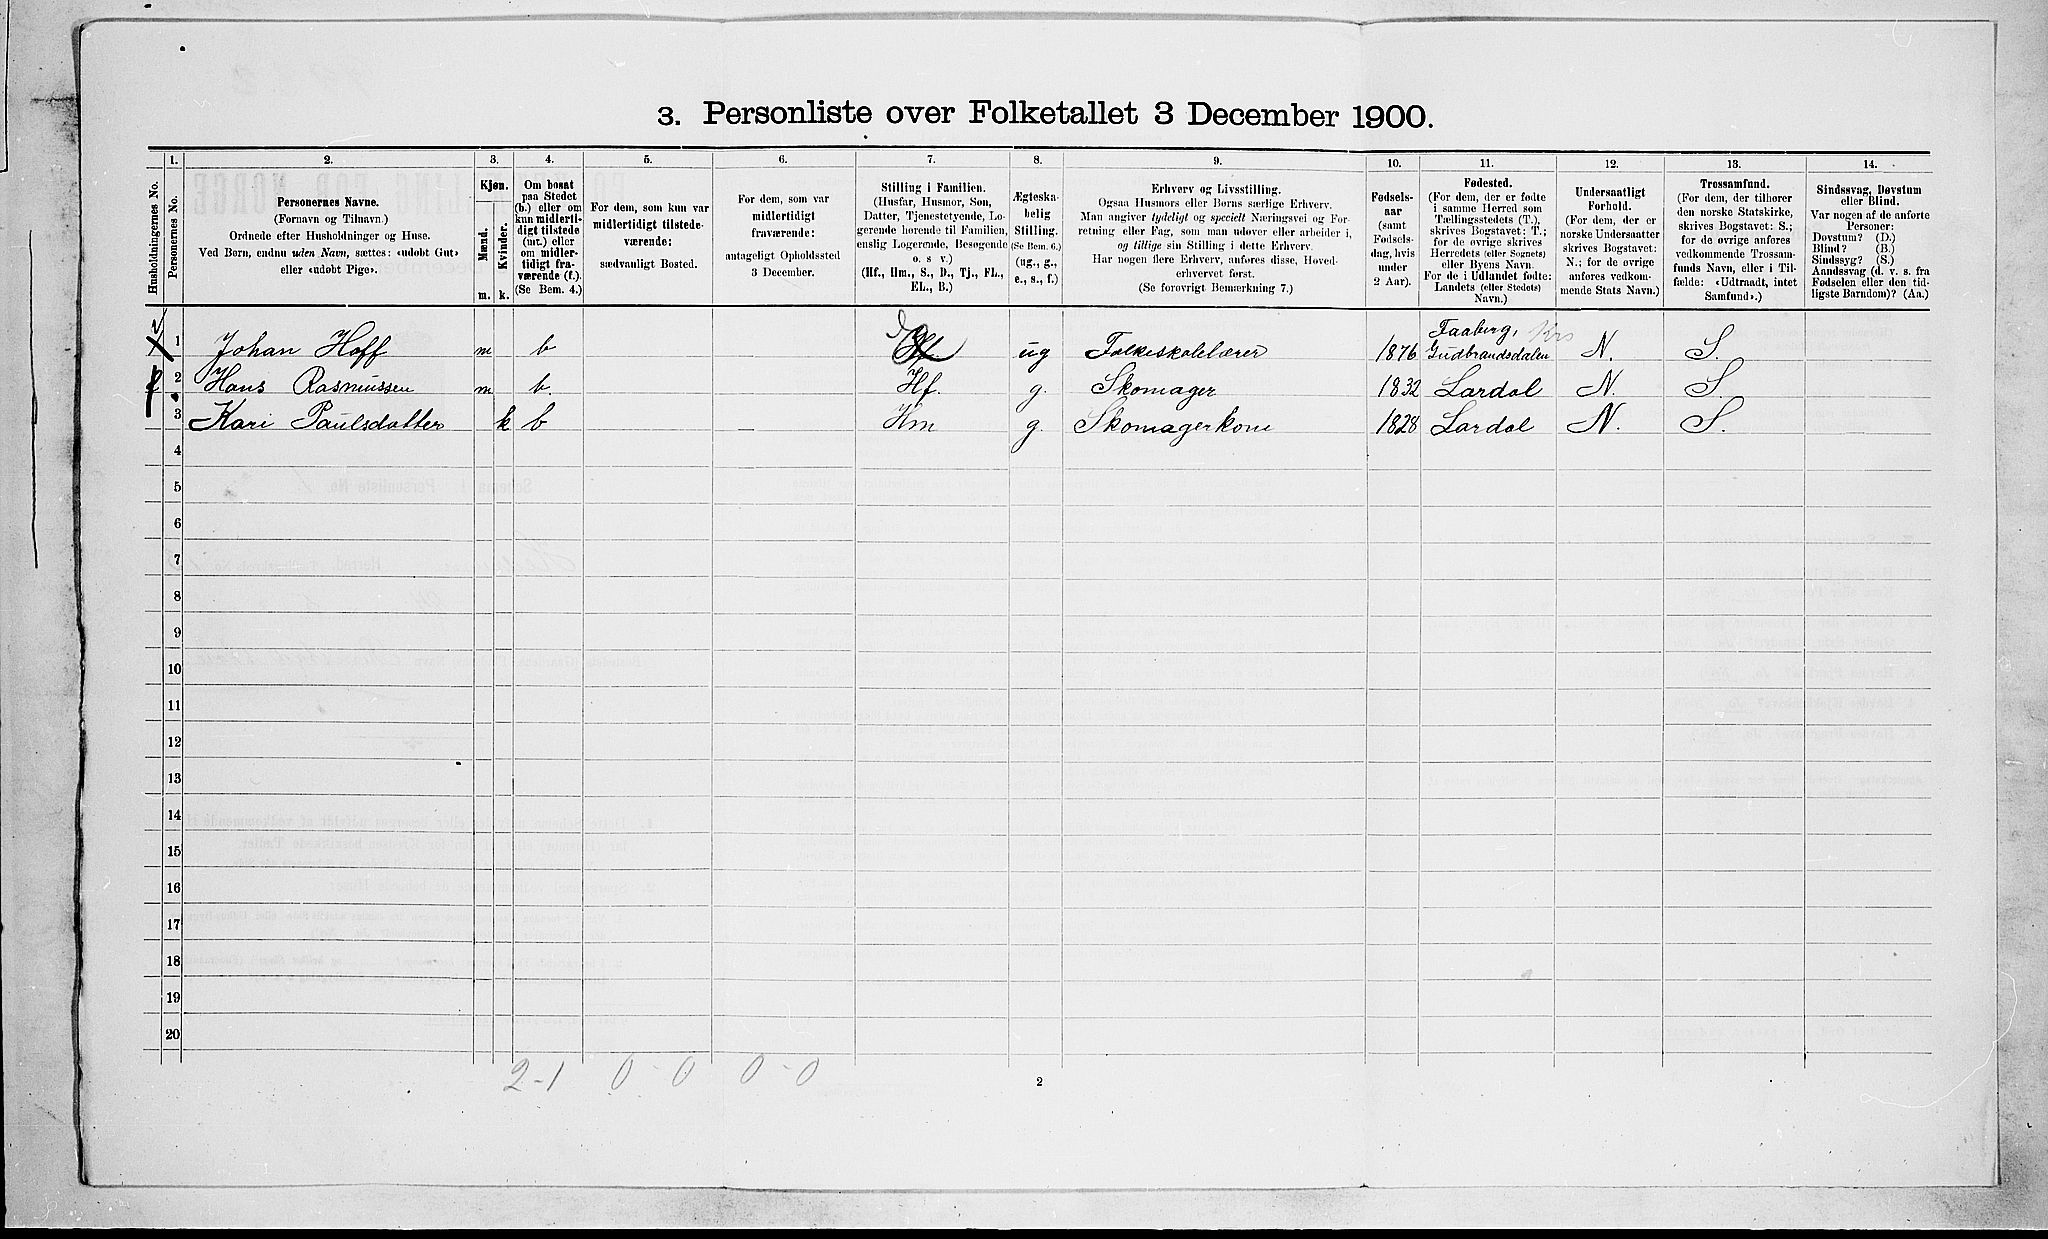 3. Personliste over Folketallet 3 December 1900.
1. 2. 3. 4. 5. 6. 7. 8. 9. 10. 11. 12. 13. 14.
Husholdningernes No.
Personernes No.
Personernes Navne.
(Fornavn og Tilnavn.)
Ordnede efter Husholdninger og Huse.
Ved Børn, endnu uden Navn, sættes: «udøbt Gut»
eller «udøbt Pige».
Kjøn.
Mænd.
Kvinder.
m. k.
Om bosat
paa Stedet
(b.) eller om
kun midlerti-
digt tilstede
(mt.) eller
om midler-
tidigt fra-
værende (f.).
(Se Bem. 4.)
For dem, som kun var
midlertidigt tilstede-
værende:
sædvanligt Bosted.
For dem, som var
midlertidigt
fraværende:
antageligt Opholdssted
3 December.
Stilling i Familien.
(Husfar, Husmor, Søn,
Datter, Tjenestetyende, Lo-
gerende hørende til Familien,
enslig Logerende, Besøgende
o. s. v.)
(Hf., Hm., S., D., Tj., FL.,
EL., B.)
Ægteska-
belig
Stilling.
(Se Bem. 6.)
(ug., g.,
e., s., f.)
Erhverv og Livsstilling.
Ogsaa Husmors eller Børns særlige Erhverv.
Man angiver tydeligt og specielt Næringsvei og For-
retning eller Fag, som man udøver eller arbeider i,
og tillige sin Stilling i dette Erhverv.
Har nogen flere Erhverv, anføres disse, Hoved-
erhvervet først.
(Se forøvrigt Bemærkning 7.)
Fødsels-
aar
(samt
Fødsels-
dag, hvis
under
2 Aar).
Fødested.
(For dem, der er fødte
i samme Herred som
Tællingsstedets (T.),
skrives Bogstavet: T.;
for de øvrige skrives
Herredets (eller Sognets)
eller Byens Navn.
For de i Udlandet fødte:
Landets (eller Stedets)
Navn.)
Undersaatligt
Forhold.
(For dem, der er
norske Undersaatter
skrives Bogstavet:
N.; for de øvrige
anføres vedkom-
mende Stats Navn.)
Trossamfund.
(For dem, der tilhører
den norske Statskirke,
skrives Bogstavet: S.;
for de øvrige anføres
vedkommende Trossam-
funds Navn, eller i Til-
fælde: «Udtraadt, intet
Samfund».)
Sindssvag, Døvstum
eller Blind.
Var nogen af de anførte
Personer:
Døvstum? (D.)
Blind? (B.)
Sindssyg? (S.)
Aandssvag (d. v. s. fra
Fødselen eller den tid-
ligste Barndom)? (Aa.)
1 Johan Hoff m b ug Folkeskolelærer 1876 Faaberg, Krs Gudbrandsdalen N. S.
2 Hans Rasmussen m b. Hf. g. Skomager 1832 Lardal N. S.
3 Kari Paulsdatter k b – Hm g. Skomagerkone 1828 Lardal N. S.
4
5
6
7
8
9
10
11
12
13
14
15
16
17
18
19
20
2-1 0-0 0-0
2